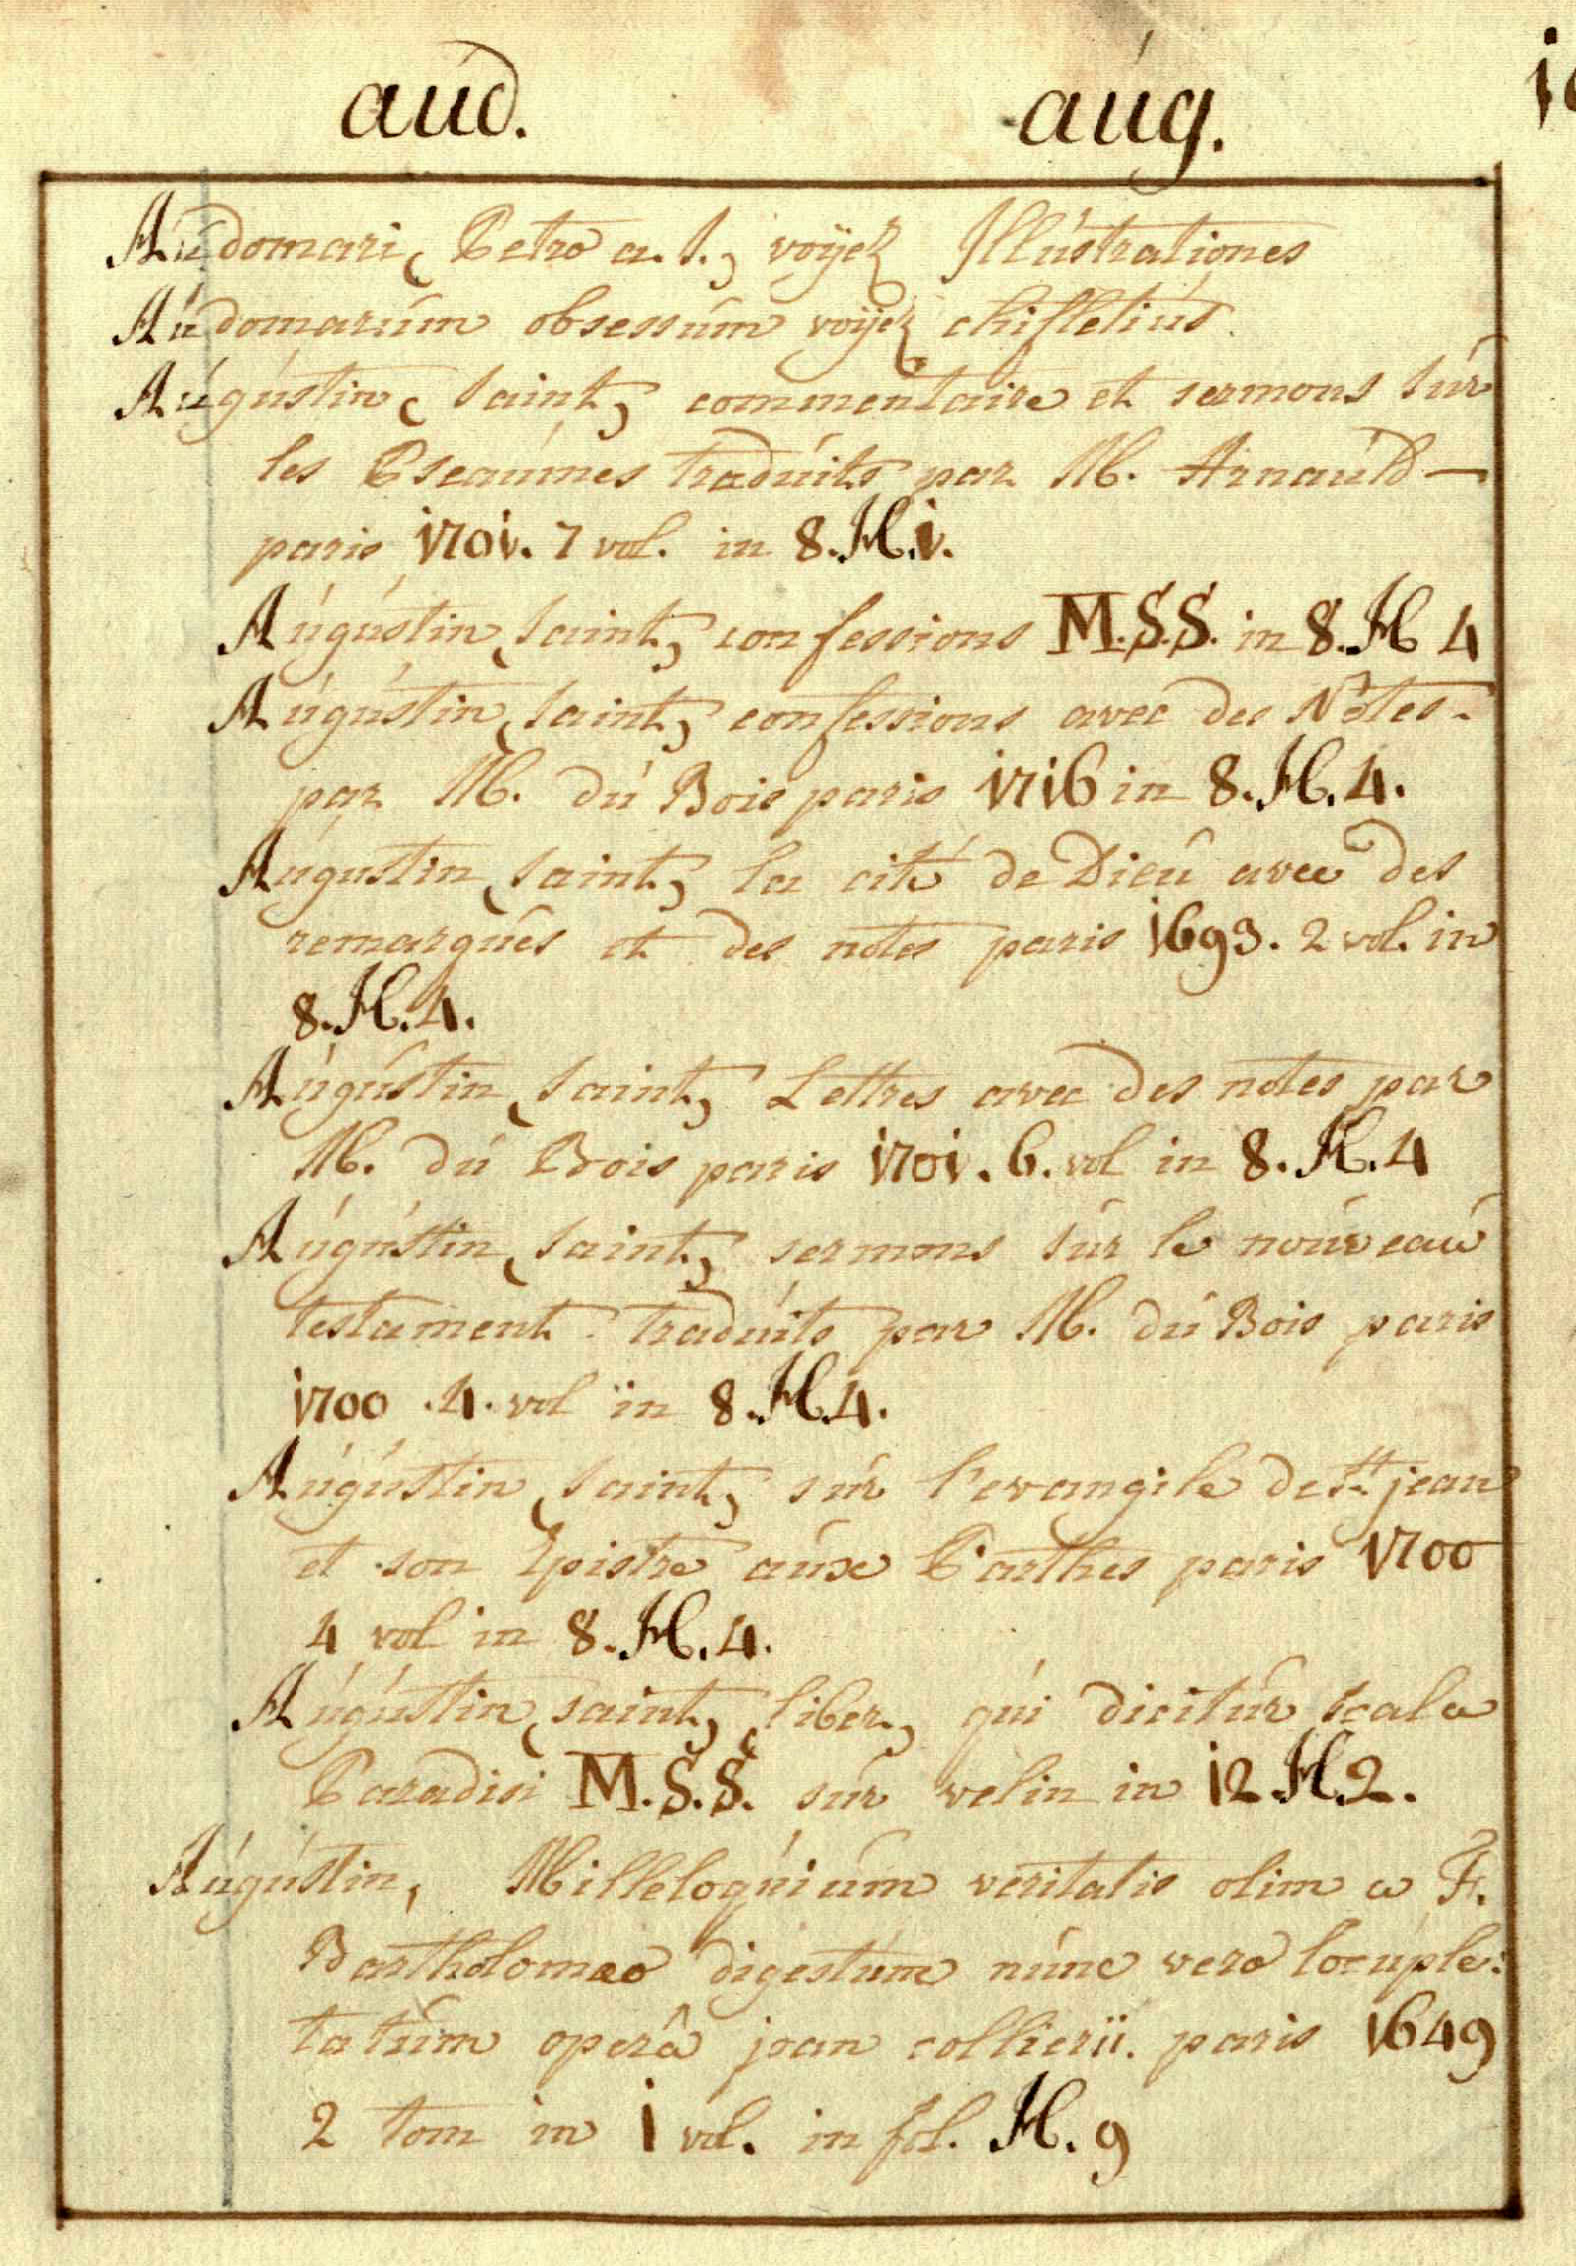 aud. aug.
Audomari, (Petro a. S.) voyez Illustrationes
Audomarum obsessum voyez chifletius.
Augustin, (saint) commentaire et sermons sur
les Pseaumes traduits par M. Arnauld —
paris 1701. 7 vol. in 8. H. 1.
Augustin (saint) confessions M.S.S. in 8. H 4
Augustin (saint) confessions avec des Notes.
par M. du Bois paris 1716 in 8. H. 4.
Augustin (saint) la cité de Dieu avec des
remarques et des notes paris 1693. 2 vol. in
8. H. 4.
Augustin (saint) Lettres avec des notes par
M. du Bois paris 1701. 6. vol in 8. H. 4
Augustin (saint) sermons sur le nouveau
testament traduits par M. du Bois paris
1700 . 4. vol in 8. H. 4.
Augustin (saint) sur l'evangile de St. jean
et son Epistre aux Parthes paris 1700
4 vol in 8. H. 4.
Augustin (saint) (liber) qui dicitur scala
Paradisi M.S.S. sur velin in 12. H. 2.
Augustin, Milleloquium veritatis olim a F.
Bartholomæo digestum nunc vero locuple:
tatum operâ joan collierii. paris 1649
2 tom in 1 vol. in fol. H. 9